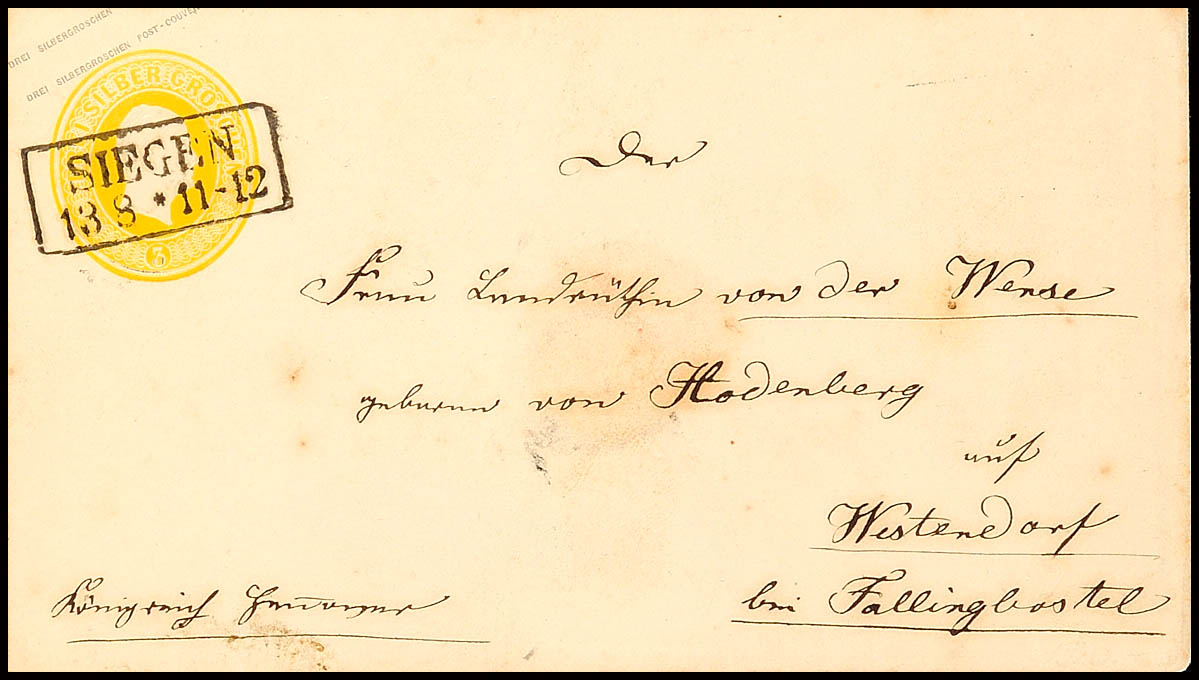 DREI SILBERGROSCHEN
DREI SILBERGROSCHEN POST-COUVE
DREI SILBER GROSCHEN
SIEGEN
13 8 * 11-12
3
Der
Frau Landräthin von der Wense
geboren von Hodenberg
auf
Westendorf
bei Fallingbostel
Königreich Hannover